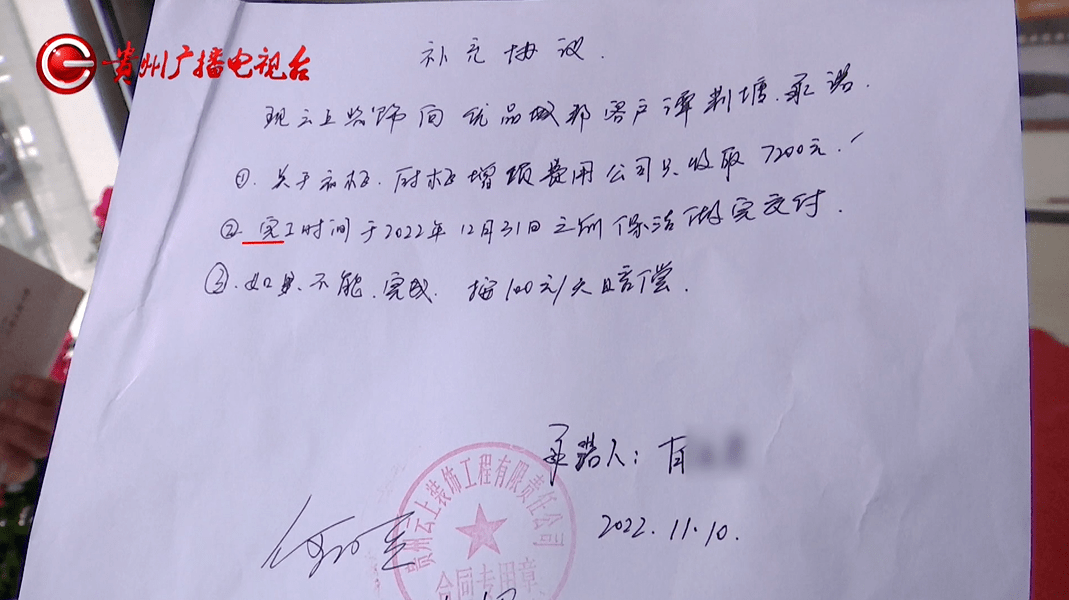 贵州广播电视台
补充协议.
现云上装饰向优品城邦客户谭 承诺.
①.关于衣柜.酒柜增项费用公司只收取7200元.
②.完工时间于2022年12月31日之前保洁做完交付.
③.如果不能.完成.按100元/天赔偿.
承诺人:
2022.11.10.
贵州云上装饰工程有限责任公司
合同专用章